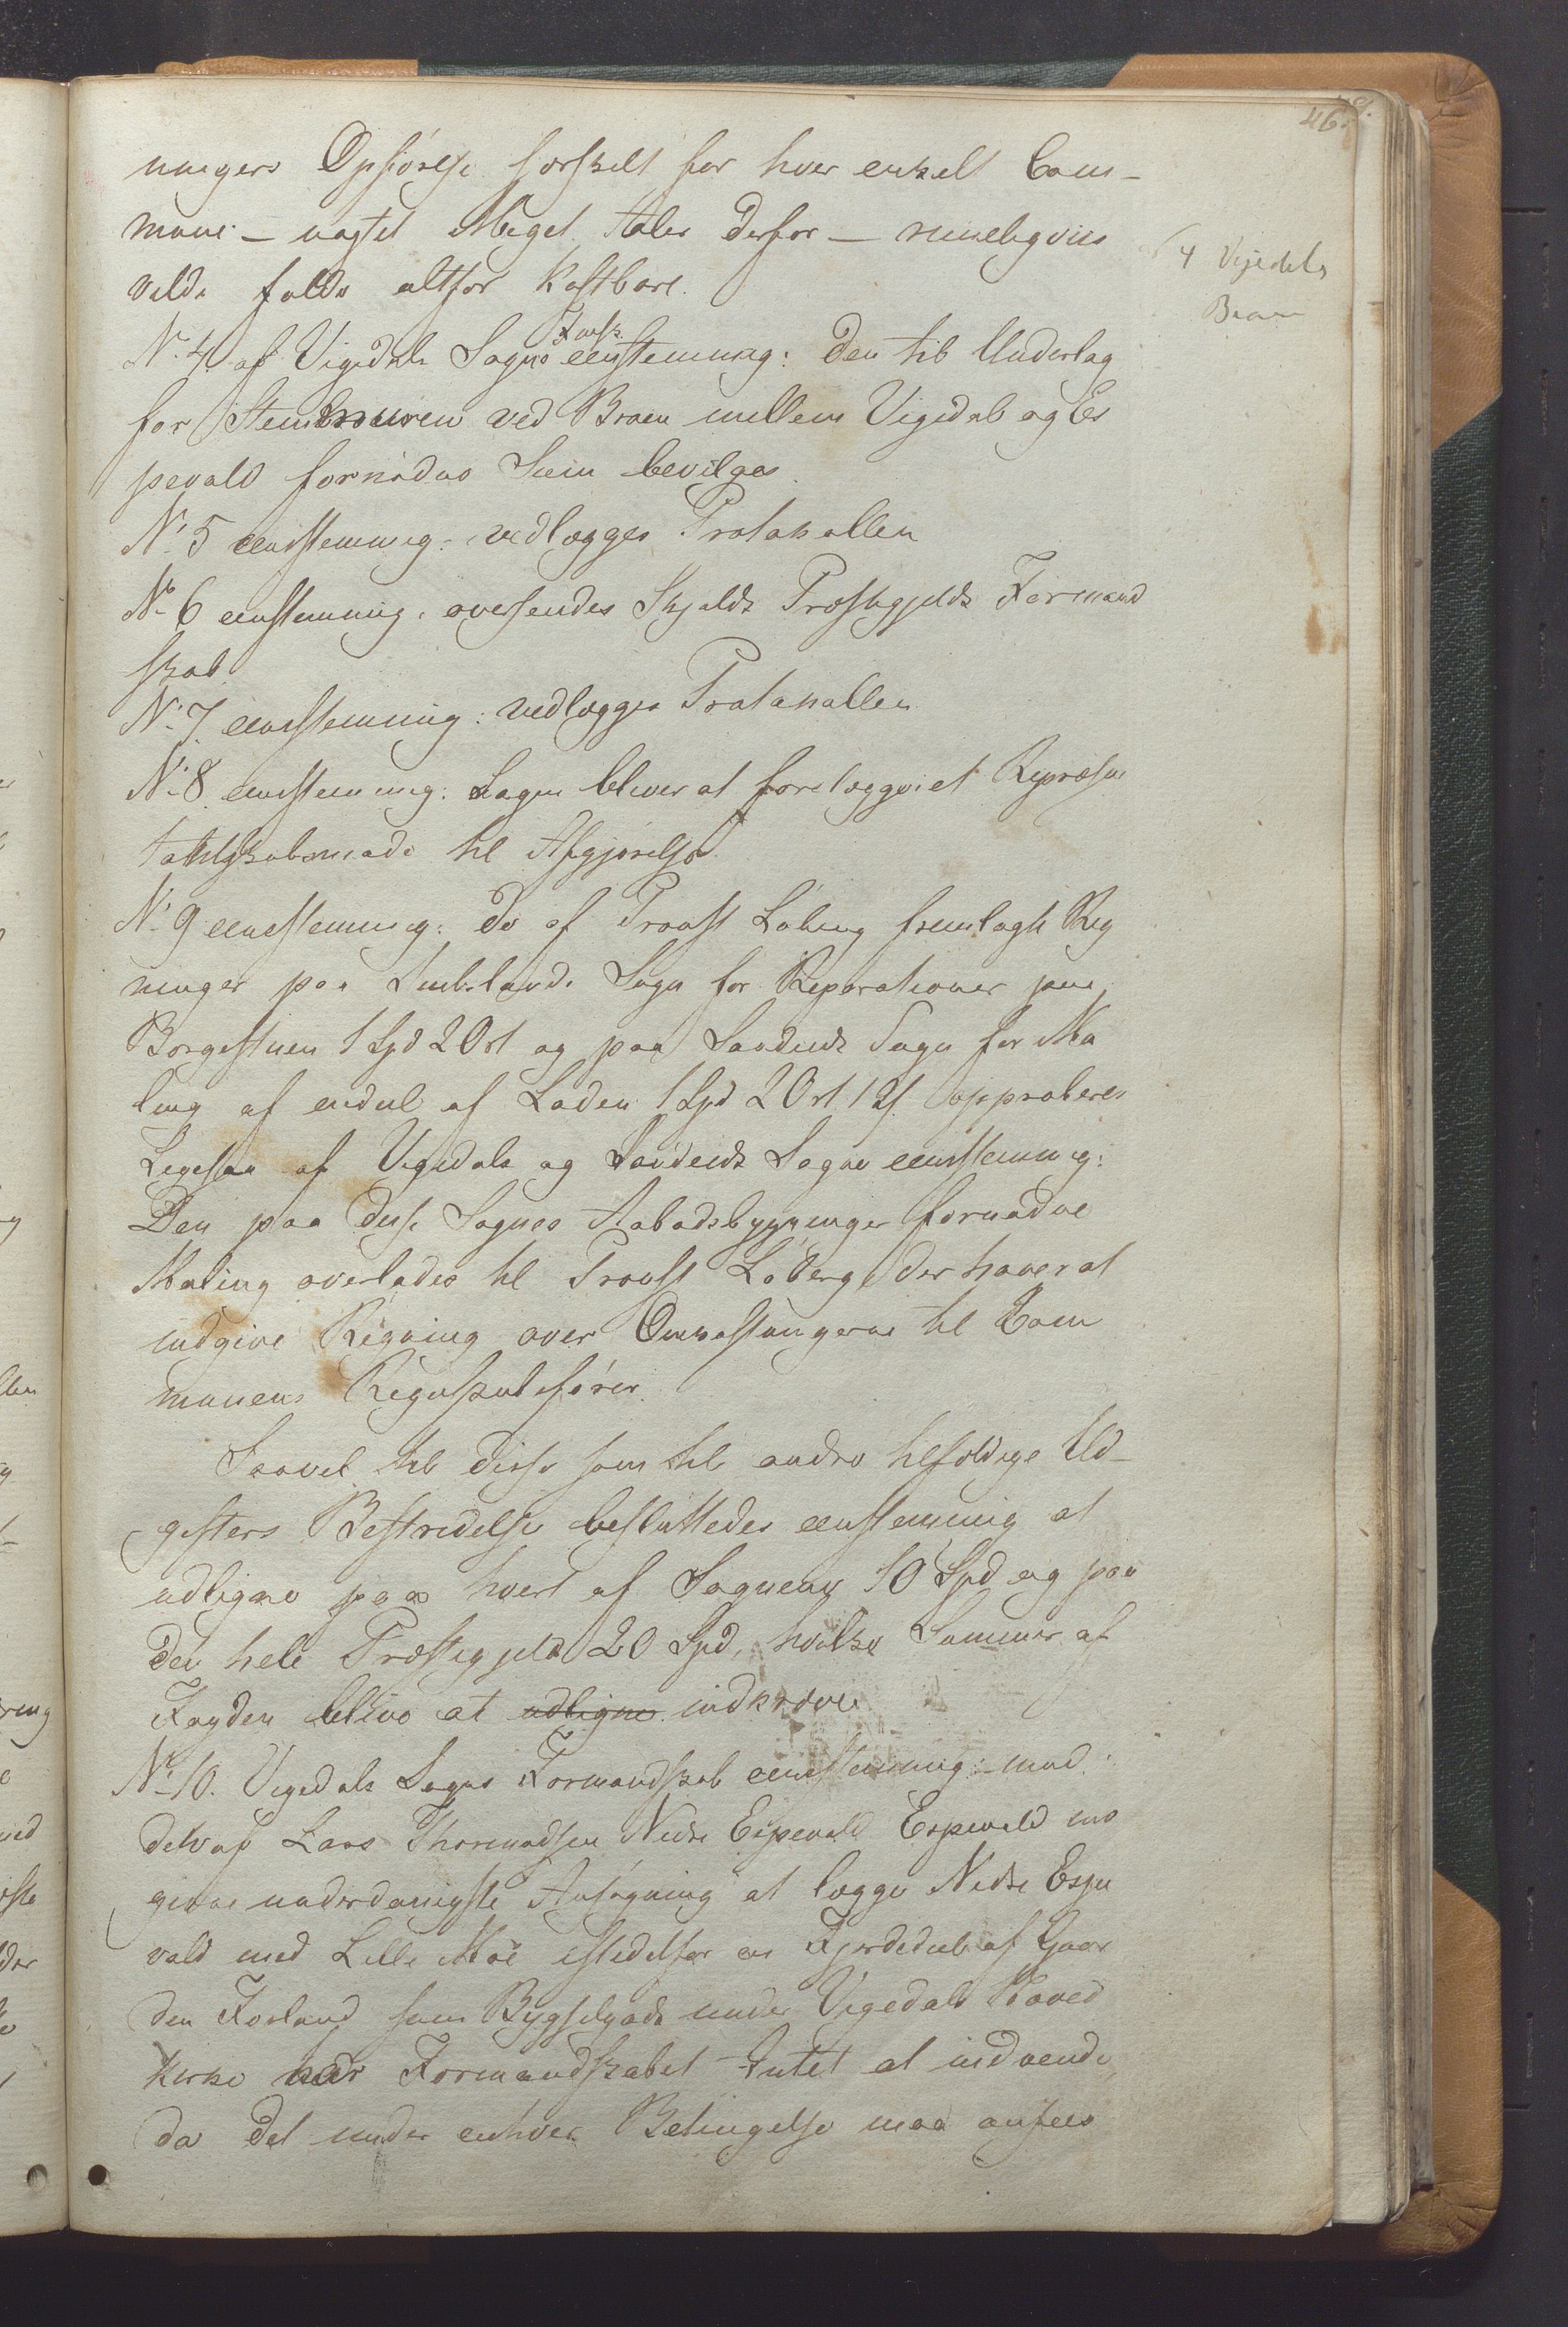 46.
ningers Opførelse særskilt for hver enkelt Com-
mune - uagtet Meget taler derfor - rimeligviis
vilde falde altfor kostbare.
4 Vigedals
Broen
No 4 af Vigedals Sogns Formsk. eenstemmig: Den til Underlag
for Steenmuren ved Broen mellem Vigedal og Es
pevald fornødne Suin bevilges.
No 5 eenstemmig: vedlægges Protokollen
No 6 eenstemmig: oversendes Skjolds Præstegjelds Formand
skab
No 7. eenstemmig: vedlægges Protokollen
No 8. eenstemmig: Sagen bliver at forelægges et Repræsen
tantskabsmøde til Afgjørelse.
No 9 eenstemmig: De af Provst Løberg fremlagte Reg
ninger paa Imblands Sogn for Reparationer paa
Borgestuen 1 Spd 2 Ort og paa Sandeids Sogn for Ma
ling af endeel af Laden 1 Spd 2 Ort 12 s approberes
Ligesaa af Vigedals og Sandeids Sogne eenstemmig:
Den paa disse Sognes Aabodsbygninger fornødne
Maling overlades til Provst Løberg, der haver at
indgive Regning over Omkostningerne til Com
munens Regnskabsfører.
Saavel til disse som til andre tilfældige Ud-
gifters Bestridelse besluttedes eenstemmig at
udligne paa hvert af Sognene 10 Spd og paa
det hele Præstegjeld 20 Spd, hvilke Summer af
Fogden blive at udligne indkræve
No 10. Vigedals Sogns Formandskab eenstemmig: mod
den af Lars Thormodsen Nedre Espevald Espevald ind
givne underdanigste Ansøgning at lægge Nedre Espe
vald med Lille Moe istedetfor en Fjerdedeel af Gaar
den Forland som Bygselgods under Vigedals Hoved
kirke har Formandskabet Intet at indvende,
da det under enhver Betingelse maa ansees